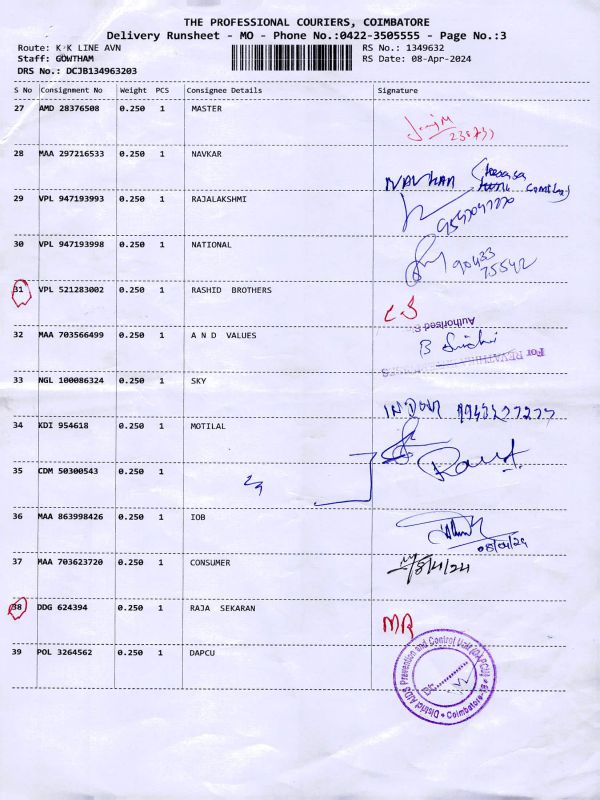 THE PROFESSIONAL COURIERS, COIMBATORE
Delivery Runsheet - MO - Phone No.:0422-3505555 - Page No.:3
Route: K K LINE AVN RS No.: 1349632
Staff: GOWTHAM RS Date: 08-Apr-2024
DRS No.: DCJB134963203
S No Consignment No Weight PCS Consignee Details Signature
27 AMD 28376508 0.250 1 MASTER
28 MAA 297216533 0.250 1 NAVKAR
NAVKAR
29 VPL 947193993 0.250 1 RAJALAKSHMI
30 VPL 947193998 0.250 1 NATIONAL
90433
75542
31 VPL 521283002 0.250 1 RASHID BROTHERS
CS
Authorised S
32 MAA 703566499 0.250 1 A N D VALUES
For REVATHI
33 NGL 100086324 0.250 1 SKY
34 KDI 954618 0.250 1 MOTILAL
35 CDM 50300543 0.250 1
36 MAA 863998426 0.250 1 IOB
08/04/24
37 MAA 703623720 0.250 1 CONSUMER
8/4/24
38 DDG 624394 0.250 1 RAJA SEKARAN
MR
39 POL 3264562 0.250 1 DAPCU
District AIDS Prevention and Control Unit (DAPCU)
Coimbatore